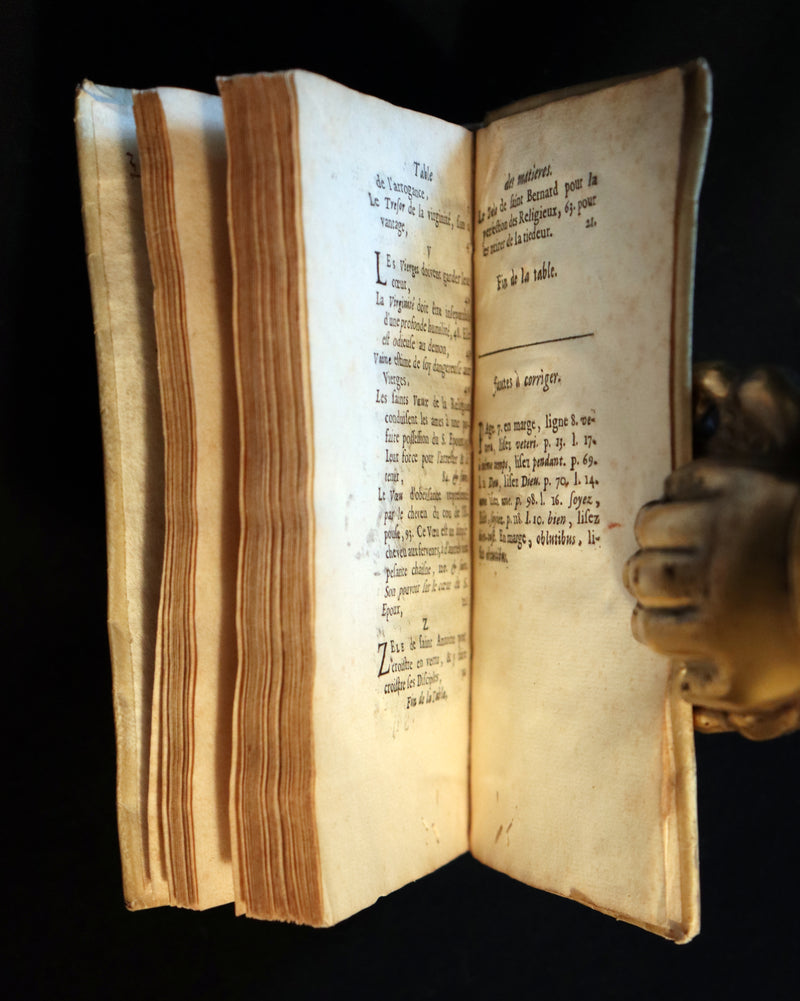 Table
de l'arrogance,
Le Tresor de la virginité, sans
vantage,
V
LEs Vierges doivent garder leur
cœur,
La Virginité doit être inseparable
d'une profonde humilité, 48. Elle
est odieuse au demon,
Vaine estime de soy dangereuse aux
Vierges,
Les saints Vœux de la Religion
conduisent les ames à une
faire possession du S. Epoux,
leur force pour l'arrester &
tenir,
Le Vœu d'obeissance represente
par le cheveu du cou de l'E-
pouse, 93. Ce Vœu est un
cheveu aux fervents, à d'autres
pesante chaisne, 120. &
Son pouvoir sur le cœur de S.
Epoux,
Z
ZELE de saint Antoine pour
croistre en vertu, &
croistre ses Disciples,
Fin de la Table,
des matieres.
Le Dolo de saint Bernard pour la
perfection des Religieux, 63. pour
les peines de la tiedeur. 21.
Fin de la table.
Fautes à corriger.
PAge. 7. en marge, ligne 8. ve-
lisez veteri. p. 23. l. 17.
même temps, lisez pendant. p. 69.
l. Dou, lisez Dieu. p. 70. l. 14.
une. p. 98. l. 16. soyez,
p. 118. l. 10. bien, lisez
En marge, oblutibus, li-